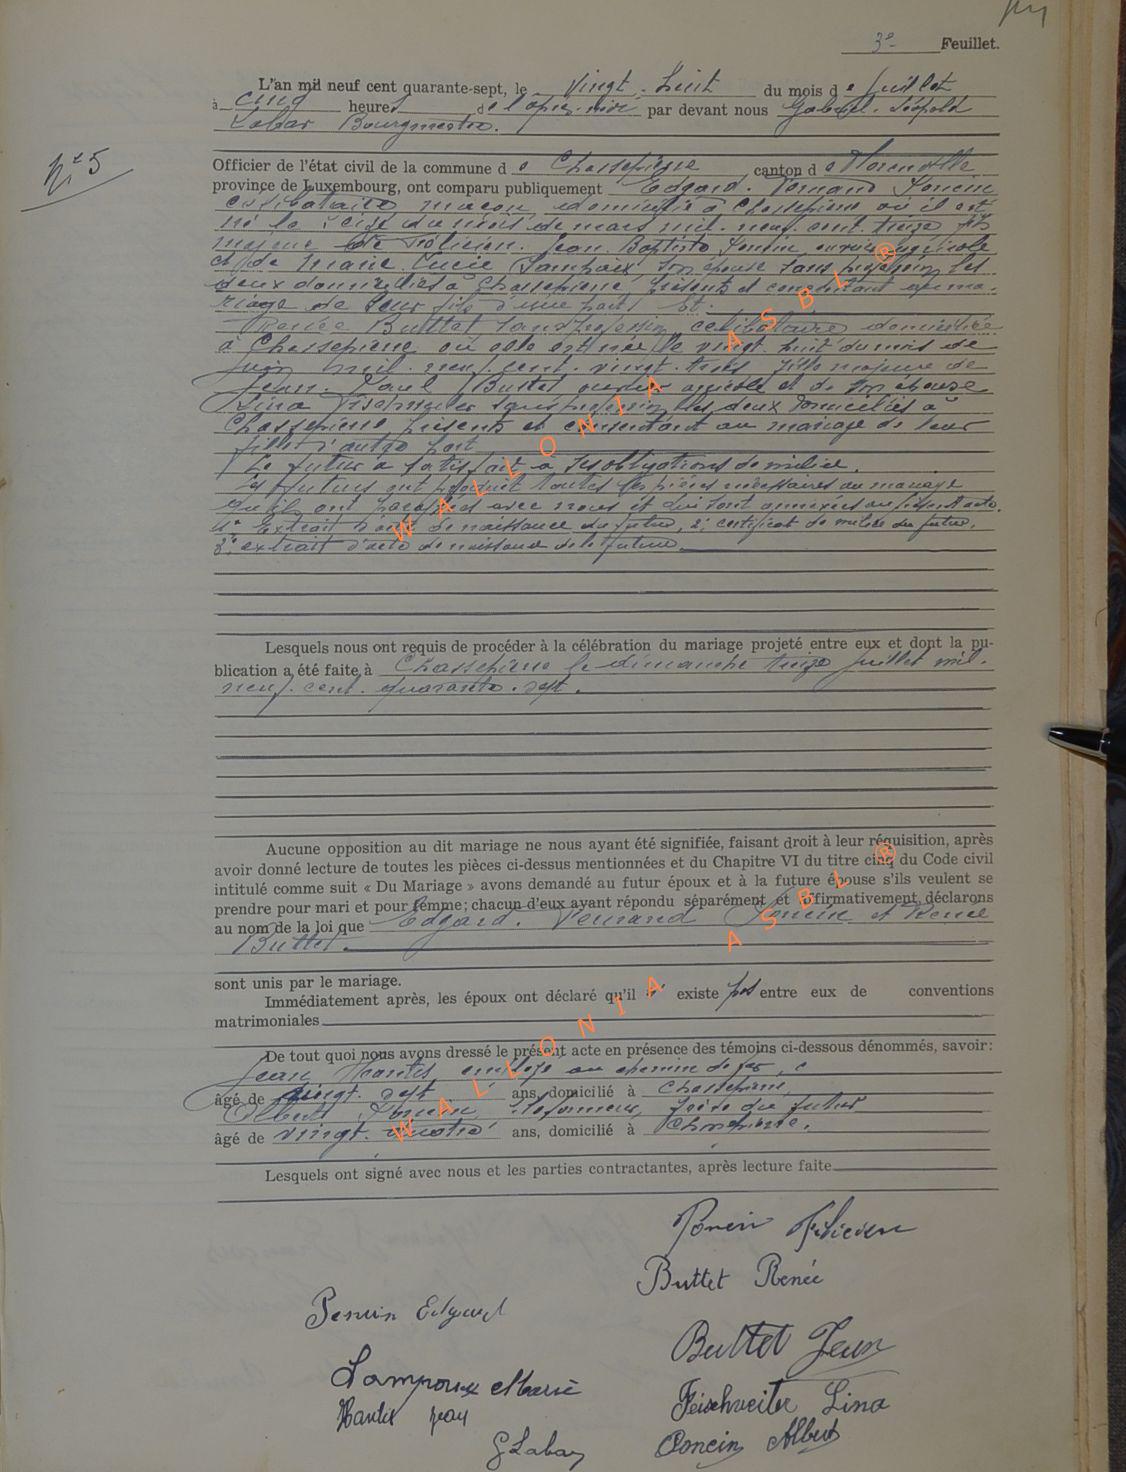 3e Feuillet.
L'an mil neuf cent quarante-sept, le vingt-huit du mois de juillet
à cinq heures de l'après-midi par devant nous Gabriel-Léopold
Labar Bourgmestre.
N° 5
Officier de l'état civil de la commune de Chassepierre canton de Florenville
province de Luxembourg, ont comparu publiquement Edgard-Fernand Poncin
célibataire maçon domicilié à Chassepierre où il est
né le seize du mois de mars mil-neuf-cent-treize fils
majeur de Félicien-Jean-Baptiste Poncin ouvrier agricole
et de Marie-Lucie Lampaix son épouse sans profession les
deux domiciliés à Chassepierre présents et consentant au ma-
riage de leur fils d'une part, Et
Renée Buttet sans profession célibataire domiciliée
à Chassepierre où elle est née le vingt-huit du mois de
juin mil-neuf-cent-vingt-trois fille majeure de
Jean-Paul Buttet ouvrier agricole et de son épouse
Lina sans profession les deux domiciliés à
Chassepierre présents et consentant au mariage de leur
fille d'autre part
Le futur a satisfait à ses obligations de milice.
Les futurs ont produit toutes les pièces nécessaires au mariage
qu'ils ont paraphées avec nous et qui sont annexées au présent acte.
1° Extrait d'acte de naissance du futur, 2° certificat de milice du futur,
3° extrait d'acte de naissance de la future.
Lesquels nous ont requis de procéder à la célébration du mariage projeté entre eux et dont la pu-
blication a été faite à Chassepierre le dimanche treize juillet mil-
neuf-cent-quarante-sept.
Aucune opposition au dit mariage ne nous ayant été signifiée, faisant droit à leur réquisition, après
avoir donné lecture de toutes les pièces ci-dessus mentionnées et du Chapitre VI du titre cinq du Code civil
intitulé comme suit « Du Mariage » avons demandé au futur époux et à la future épouse s'ils veulent se
prendre pour mari et pour femme; chacun d'eux ayant répondu séparément et affirmativement, déclarons
au nom de la loi que Edgard-Fernand Poncin et Renée
Buttet
sont unis par le mariage.
Immédiatement après, les époux ont déclaré qu'il n' existe pas entre eux de conventions
matrimoniales
De tout quoi nous avons dressé le présent acte en présence des témoins ci-dessous dénommés, savoir:
Jean Hantis employé au chemin de fer,
âgé de vingt-sept ans, domicilié à Chassepierre,
Albert Poncin frère du futur
âgé de vingt-quatre ans, domicilié à Chassepierre.
Lesquels ont signé avec nous et les parties contractantes, après lecture faite
Poncin Félicien
Buttet Renée
Poncin Edgard
Buttet Jean
Lampaix Marie
Feischveiter Lina
Jean
Poncin Albert
G Labar
WALLONIA ASBL ®
WALLONIA ASBL ®